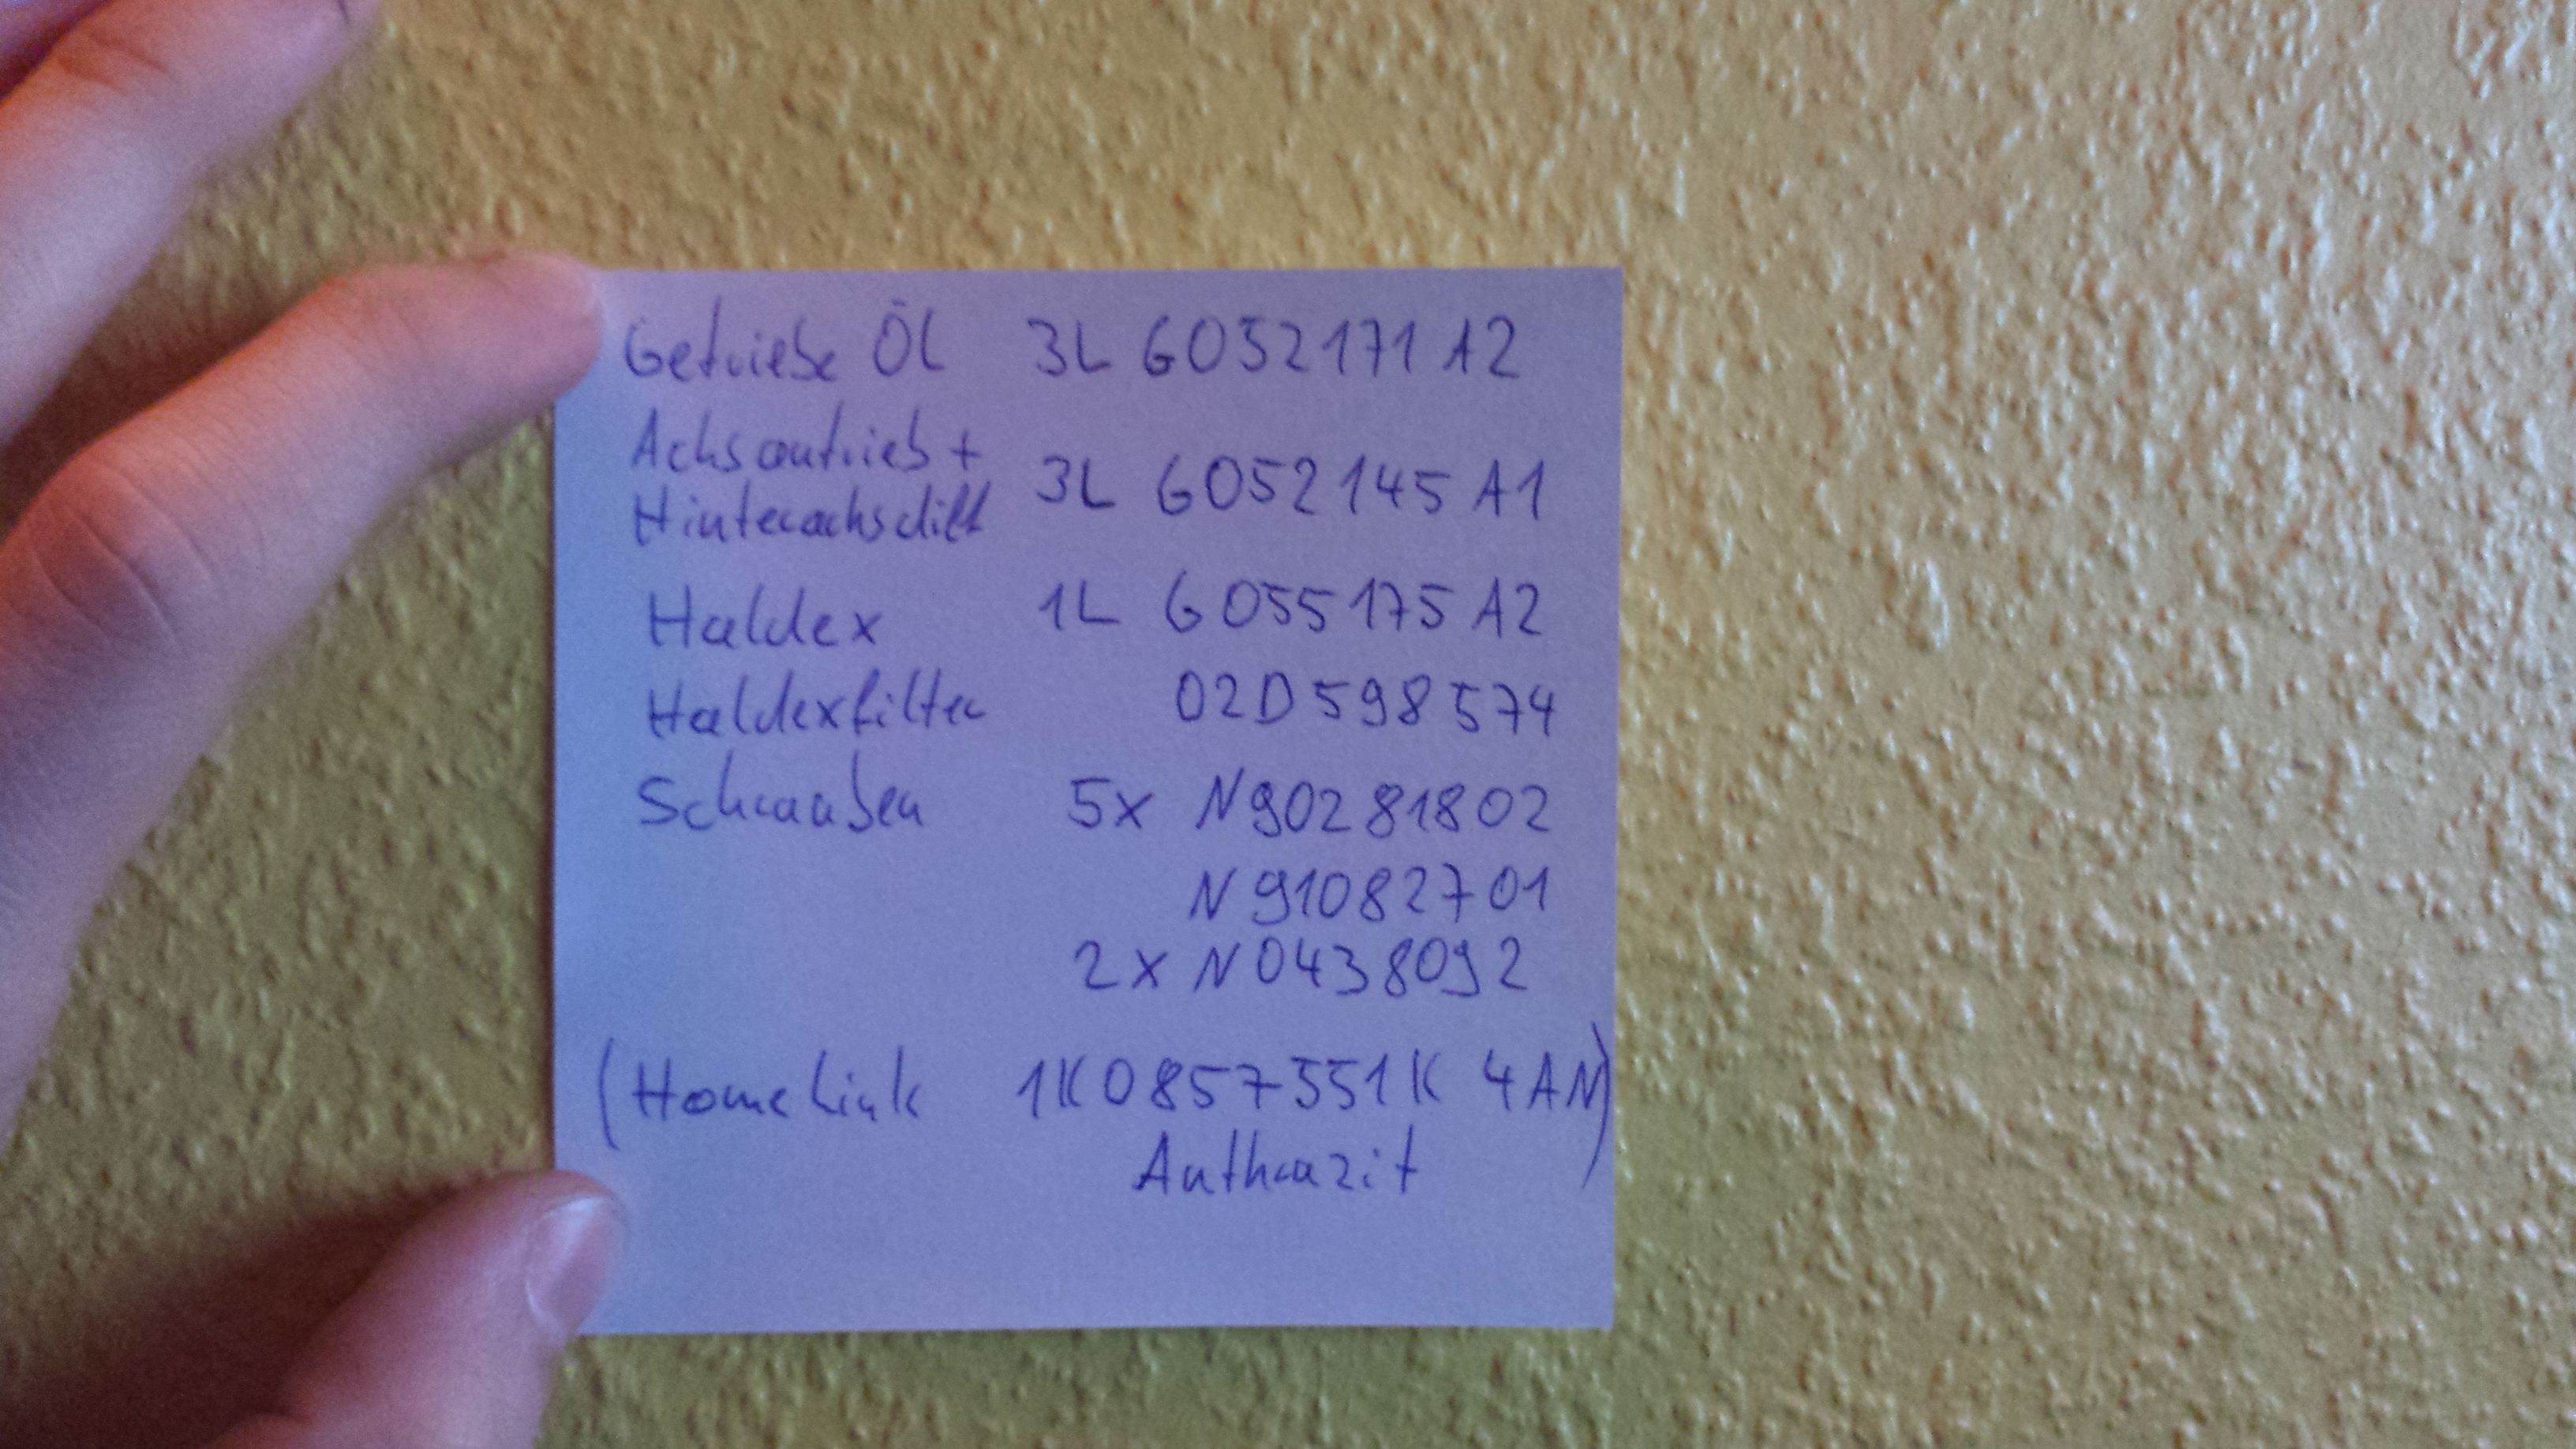 Getriebe Öl 3L G052171 A2
Achsantrieb +
Hinterachsdiff 3L G052145 A1
Haldex 1L G055175 A2
Haldexfilter 02D598574
Schrauben 5x N90281802
N91082701
2x N0438092
(HomeLink 1K0857551K 4AN)
Anthrazit